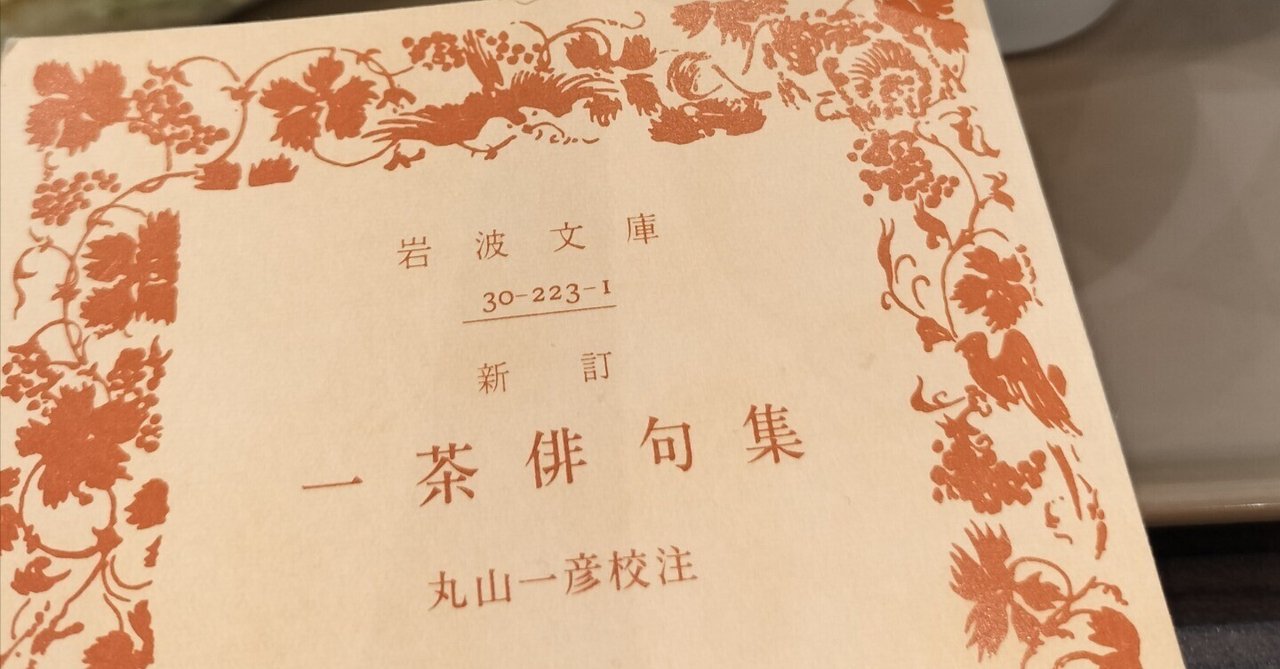 岩波文庫
30-223-1
新訂
一茶俳句集
丸山一彦校注